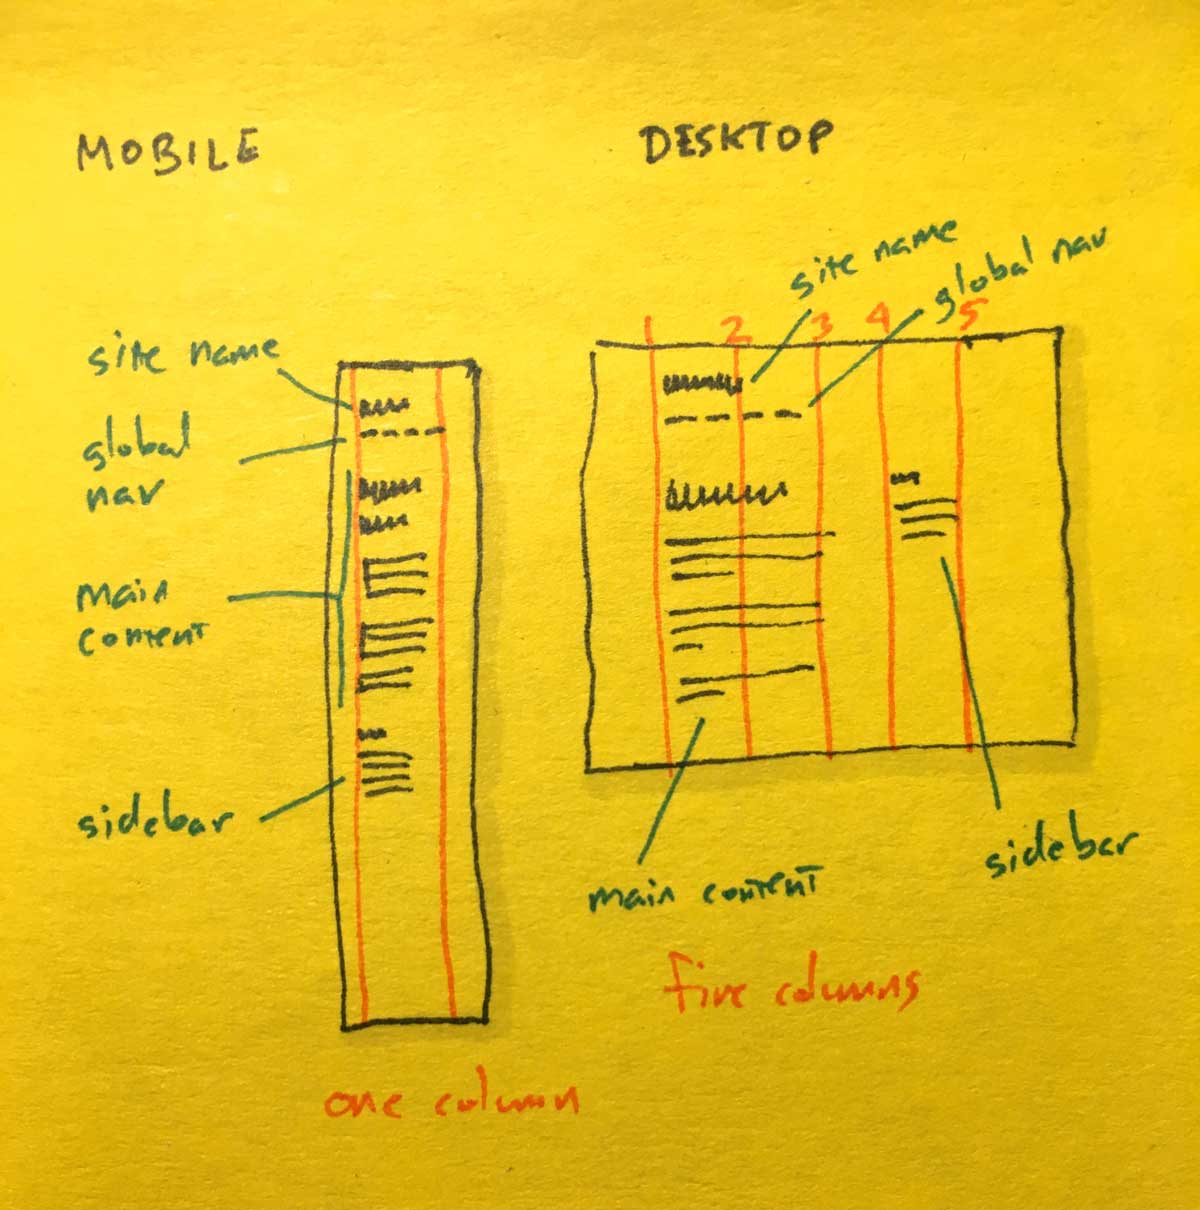 MOBILE
DESKTOP
site name
global
nav
main
content
sidebar
one column
site name
global nav
1 2 3 4 5
main content
sidebar
five columns